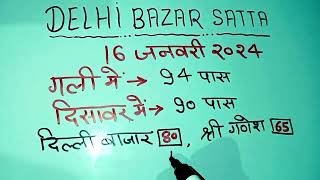 DELHI BAZAR SATTA
16 जनवरी २०२4
गली में → 94 पास
दिसावर में → 90 पास
दिल्ली बाजार 80, श्री गणेश 65